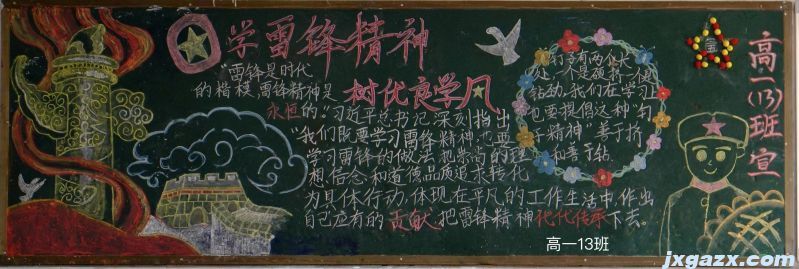 学雷锋精神
树优良学风
"雷锋是时代
的楷模,雷锋精神是
永恒的。"习近平总书记深刻指出
"我们既要学习雷锋精神,也要
学习雷锋的做法,把崇高的理
想信念和道德品质追求转化
为具体行动,体现在平凡的工作生活中,作出
自己应有的贡献,把雷锋精神代代传承下去。
钉子有两个长
处:一个是硬,挤一个是
钻劲,我们在学习上
也要提倡这种"钉
子精神"善于挤
和善于钻。
高一(13)班宣
高一13班
jxgazx.com